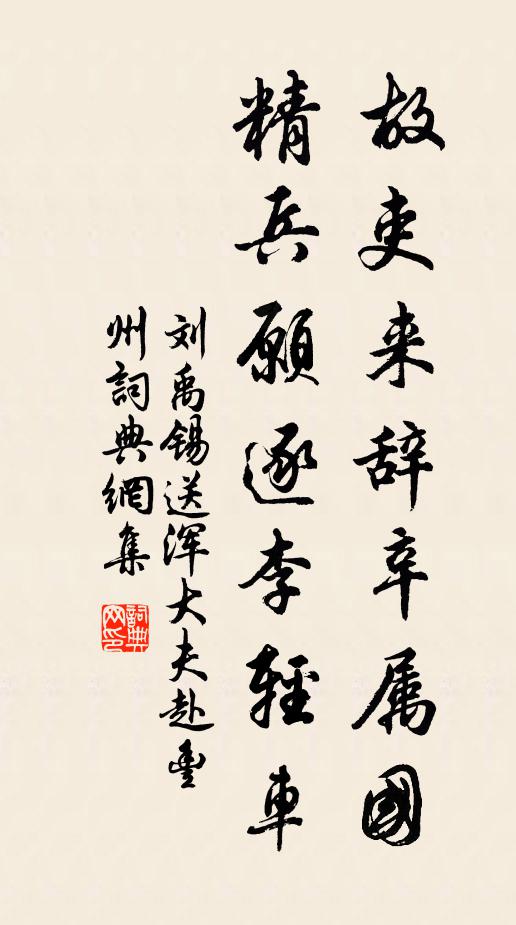 故吏来辞辛属國
精兵願逐李輕車
刘禹锡送浑大夫赴豊
州詞典網集
詞典网印